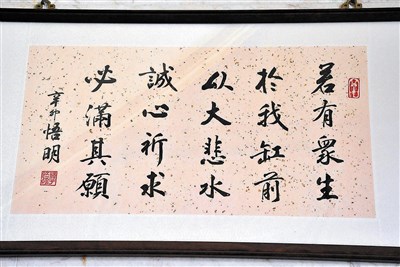 若有眾生
於我缸前
以大悲水
誠心祈求
必滿其願
辛卯悟明